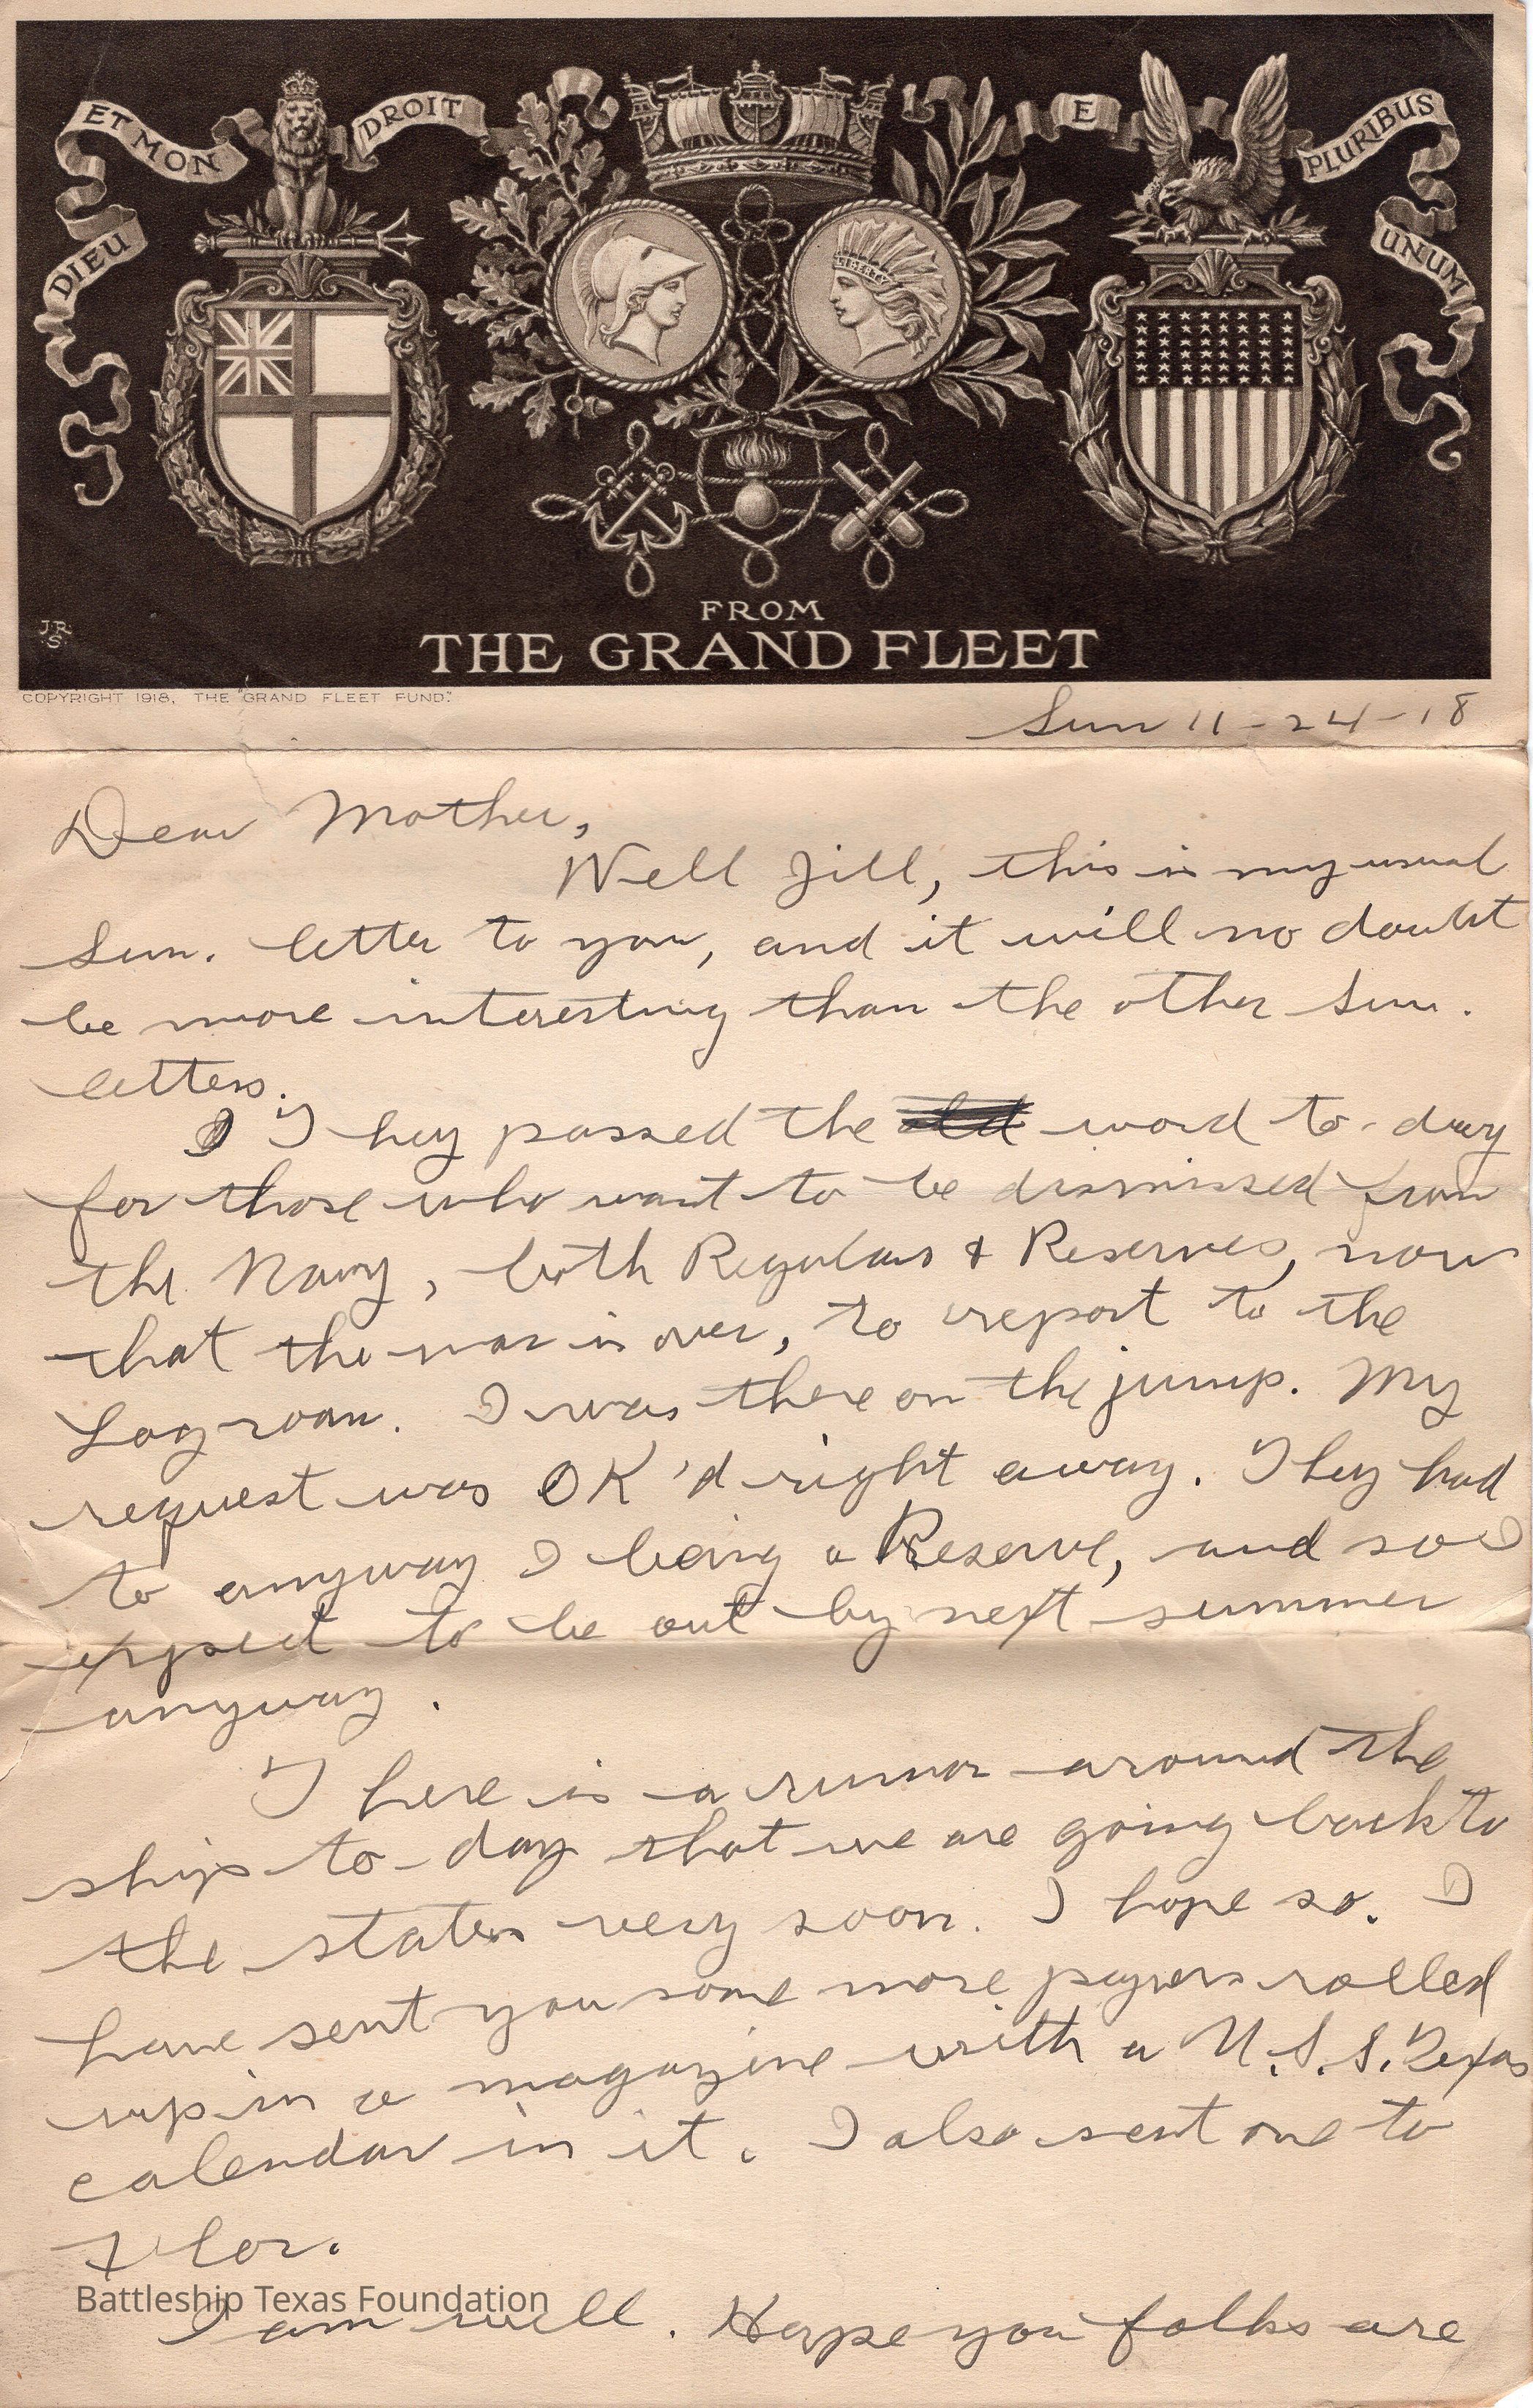 ET MON DROIT
DIEU
E PLURIBUS
UNUM
J.R.
S.
FROM
THE GRAND FLEET
COPYRIGHT 1918, THE "GRAND FLEET FUND".
Sun 11-24-18
Dear Mother,
Well Jill, this is my usual
Sun. letter to you, and it will no doubt
be more interesting than the other Sun.
letters.
They passed the old word to-day
for those who want to be dismissed from
the Navy, both Regulars & Reserves, now
that the war is over, to report to the
Log room. I was there on the jump. My
request was OK'd right away. They had
to anyway I being a Reserve, and so I
expect to be out by next summer
anyway.
There is a rumor around the
ship to-day that we are going back to
the states very soon. I hope so. I
have sent you some more papers rolled
up in a magazine with a U.S.S. Texas
calendar in it. I also sent one to
Flor.
Battleship Texas Foundation
I am well. Hope you folks are